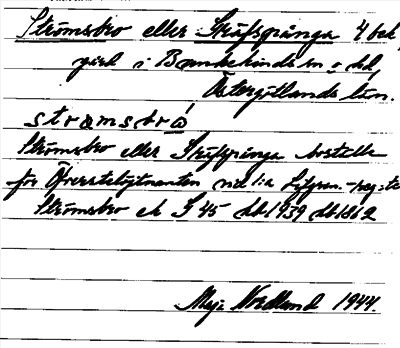 Strömsbro eller Skräfspånga 4 bef,
gård i Bankekinds sn o hd,
Östergötlands län.
strømsbró
Strömsbro eller Skräfspånga boställe
för Öfverstelöjtnanten vid 1:a Lifgren.-reg:te
Strömsbro ek G 45 db 1939 db 1862
Maja Nordlund 1944.